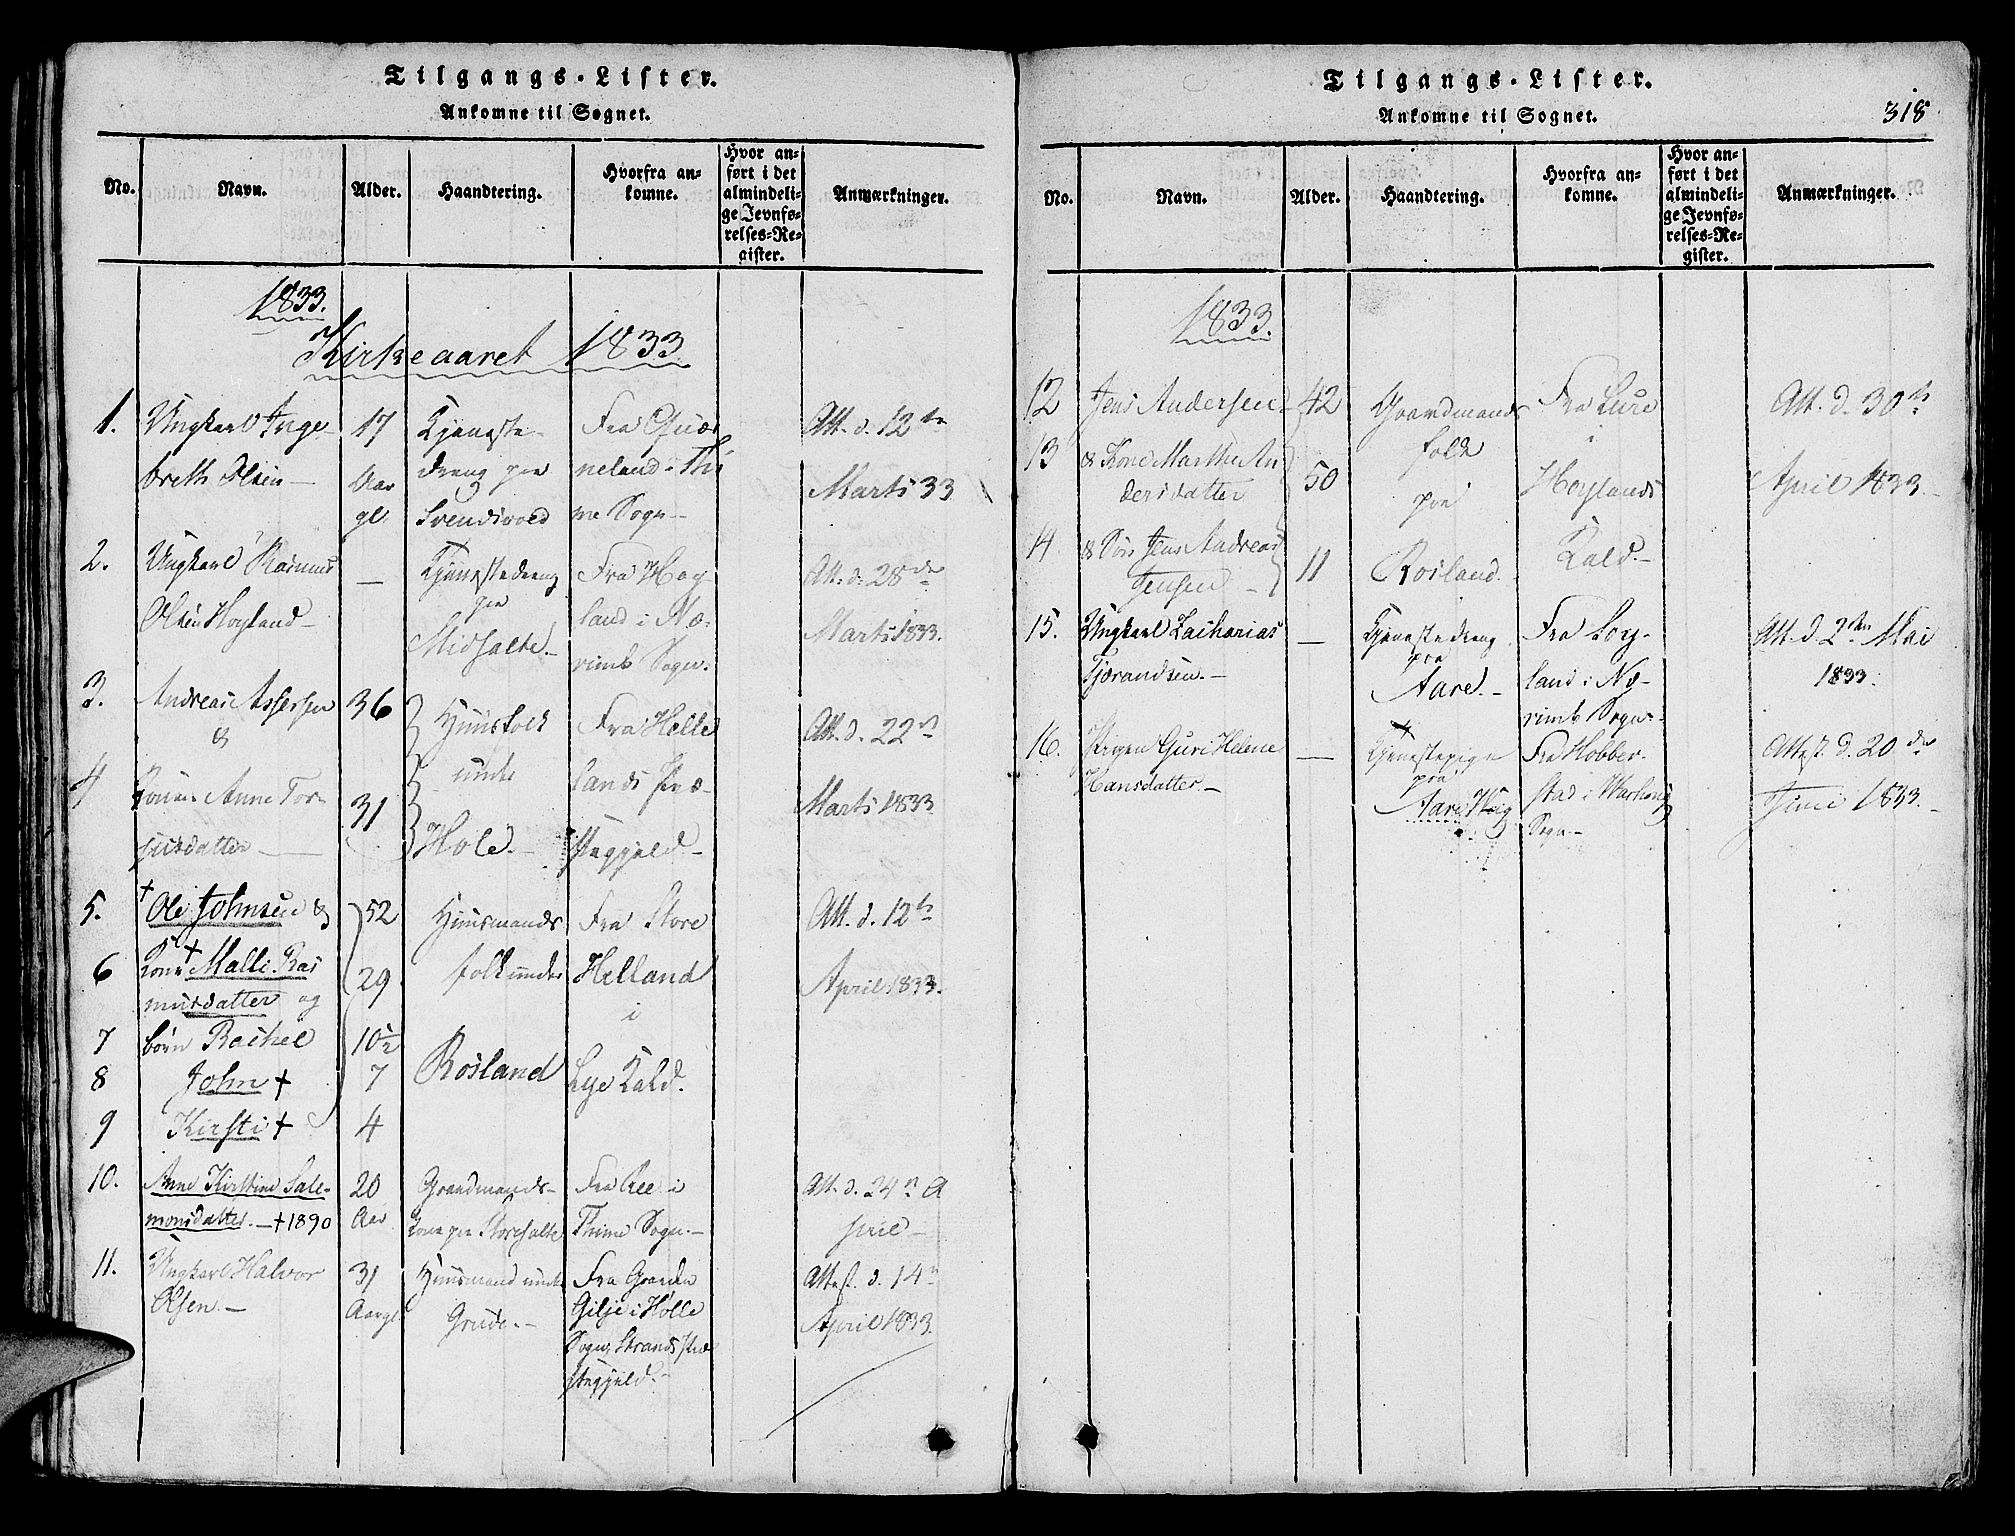 Tilgangs-Lister.
Ankomne til Sognet.
No.
Navn.
Alder.
Haandtering.
Hvorfra an-
komne.
Hvor an-
ført i det
almindeli-
ge Jevnfø-
relses-Re-
gister.
Anmærkninger.
1833.
Kirkeaaret 1833
1.
Ungkarl Inge-
breth Olsen
17
Aar
gl.
Tjeneste-
dreng paa
Svendsvold
Fra
neland i Thi
me Sogn
Att. d. 12te
Marts 33
2.
Ungkarl Rasmus
Olsen Høyland
—
Tjenestedreng
paa
Midsalte.
Fra Høy
land i Næ-
rimb Sogn.
Att. d. 28de
Marts 1833.
3.
Andreas Assersen
&
36
Huusfolk
under
Hole.
Fra Helle
lands Præ-
stegjeld
Att. d. 22de
Marts 1833
4
Konen Anne Tor-
jusdatter
31
5.
† Ole Johnsen &
52
Huusmands
folk under
Rosland
Fra Store
Helland
i
Lye Kald.
Att. d. 12te
April 1833.
6
Kone † Malli Ras
musdatter og
29
7
børn Rachel
10½
8
John †
7
9
Kirsti †
4
10.
Anne Kirstine Sale-
monsdatter. — † 1890
20
Aar
Gaardmands-
kone paa Storesalte
Fra Lee i
Thime Sogn.
Att. d. 24de A
pril
11.
Ungkarl Halvor
Olsen.
31
Aargl
Huusmand under
Grude.
Fra Gaarden
Gilje i Holle
Sogn, Strands Præ
stegjeld.
Attest. d. 14de
April 1833.
Tilgangs-Lister.
Ankomne til Sognet.
318
No.
Navn.
Alder.
Haandtering.
Hvorfra an-
komne.
Hvor an-
ført i det
almindeli-
ge Jevnfø-
relses-Re-
gister.
Anmærkninger.
1833.
12
Jens Andersen
42
Gaardmands
folk
paa
Rosland.
Fra Lure
i
Høylands
Kald.
Att. d. 30te
April 1833.
13
& Kone Marthe An
dersdatter
50
14
& Søn Jens Andreas
Jensen
11
15.
Ungkarl Zacharias
Tjerandsen.
—
Tjenestedreng
paa
Aare.
Fra Høy-
land i Næ-
rimb Sogn.
Att. d. 2den Mai
1833.
16.
Pigen Guri Helene
Hansdatter.
—
Tjenestepige
paa
Aare
Fra Hobber-
stad i Warhoug
Sogn
Attest. d. 20de
Juni 1833.